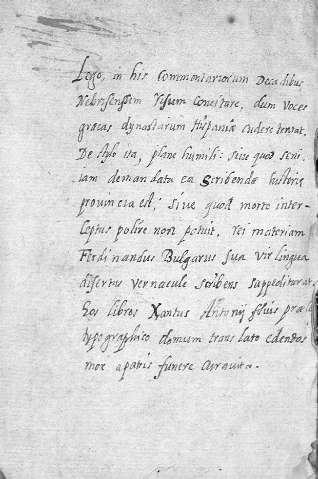 Lego, in his Commentariorum Decadibus
Nebrissensem Visum concitare, dum voces
græcas dynastarum Hispaniæ cudere tentat.
De stylo ita, plane humili: siue quod seni
iam demandata ea Scribendæ historiæ
prouincia est; siue quod morte inter-
ceptus polire non potuit. rei materiam
Ferdinandus Bulgarus sua vir lingua
disertus vernacule scribens suppeditarat.
hos libros Xantus Antonij filius
typographico domum trans lato edendos
mox a patris funere curauit.